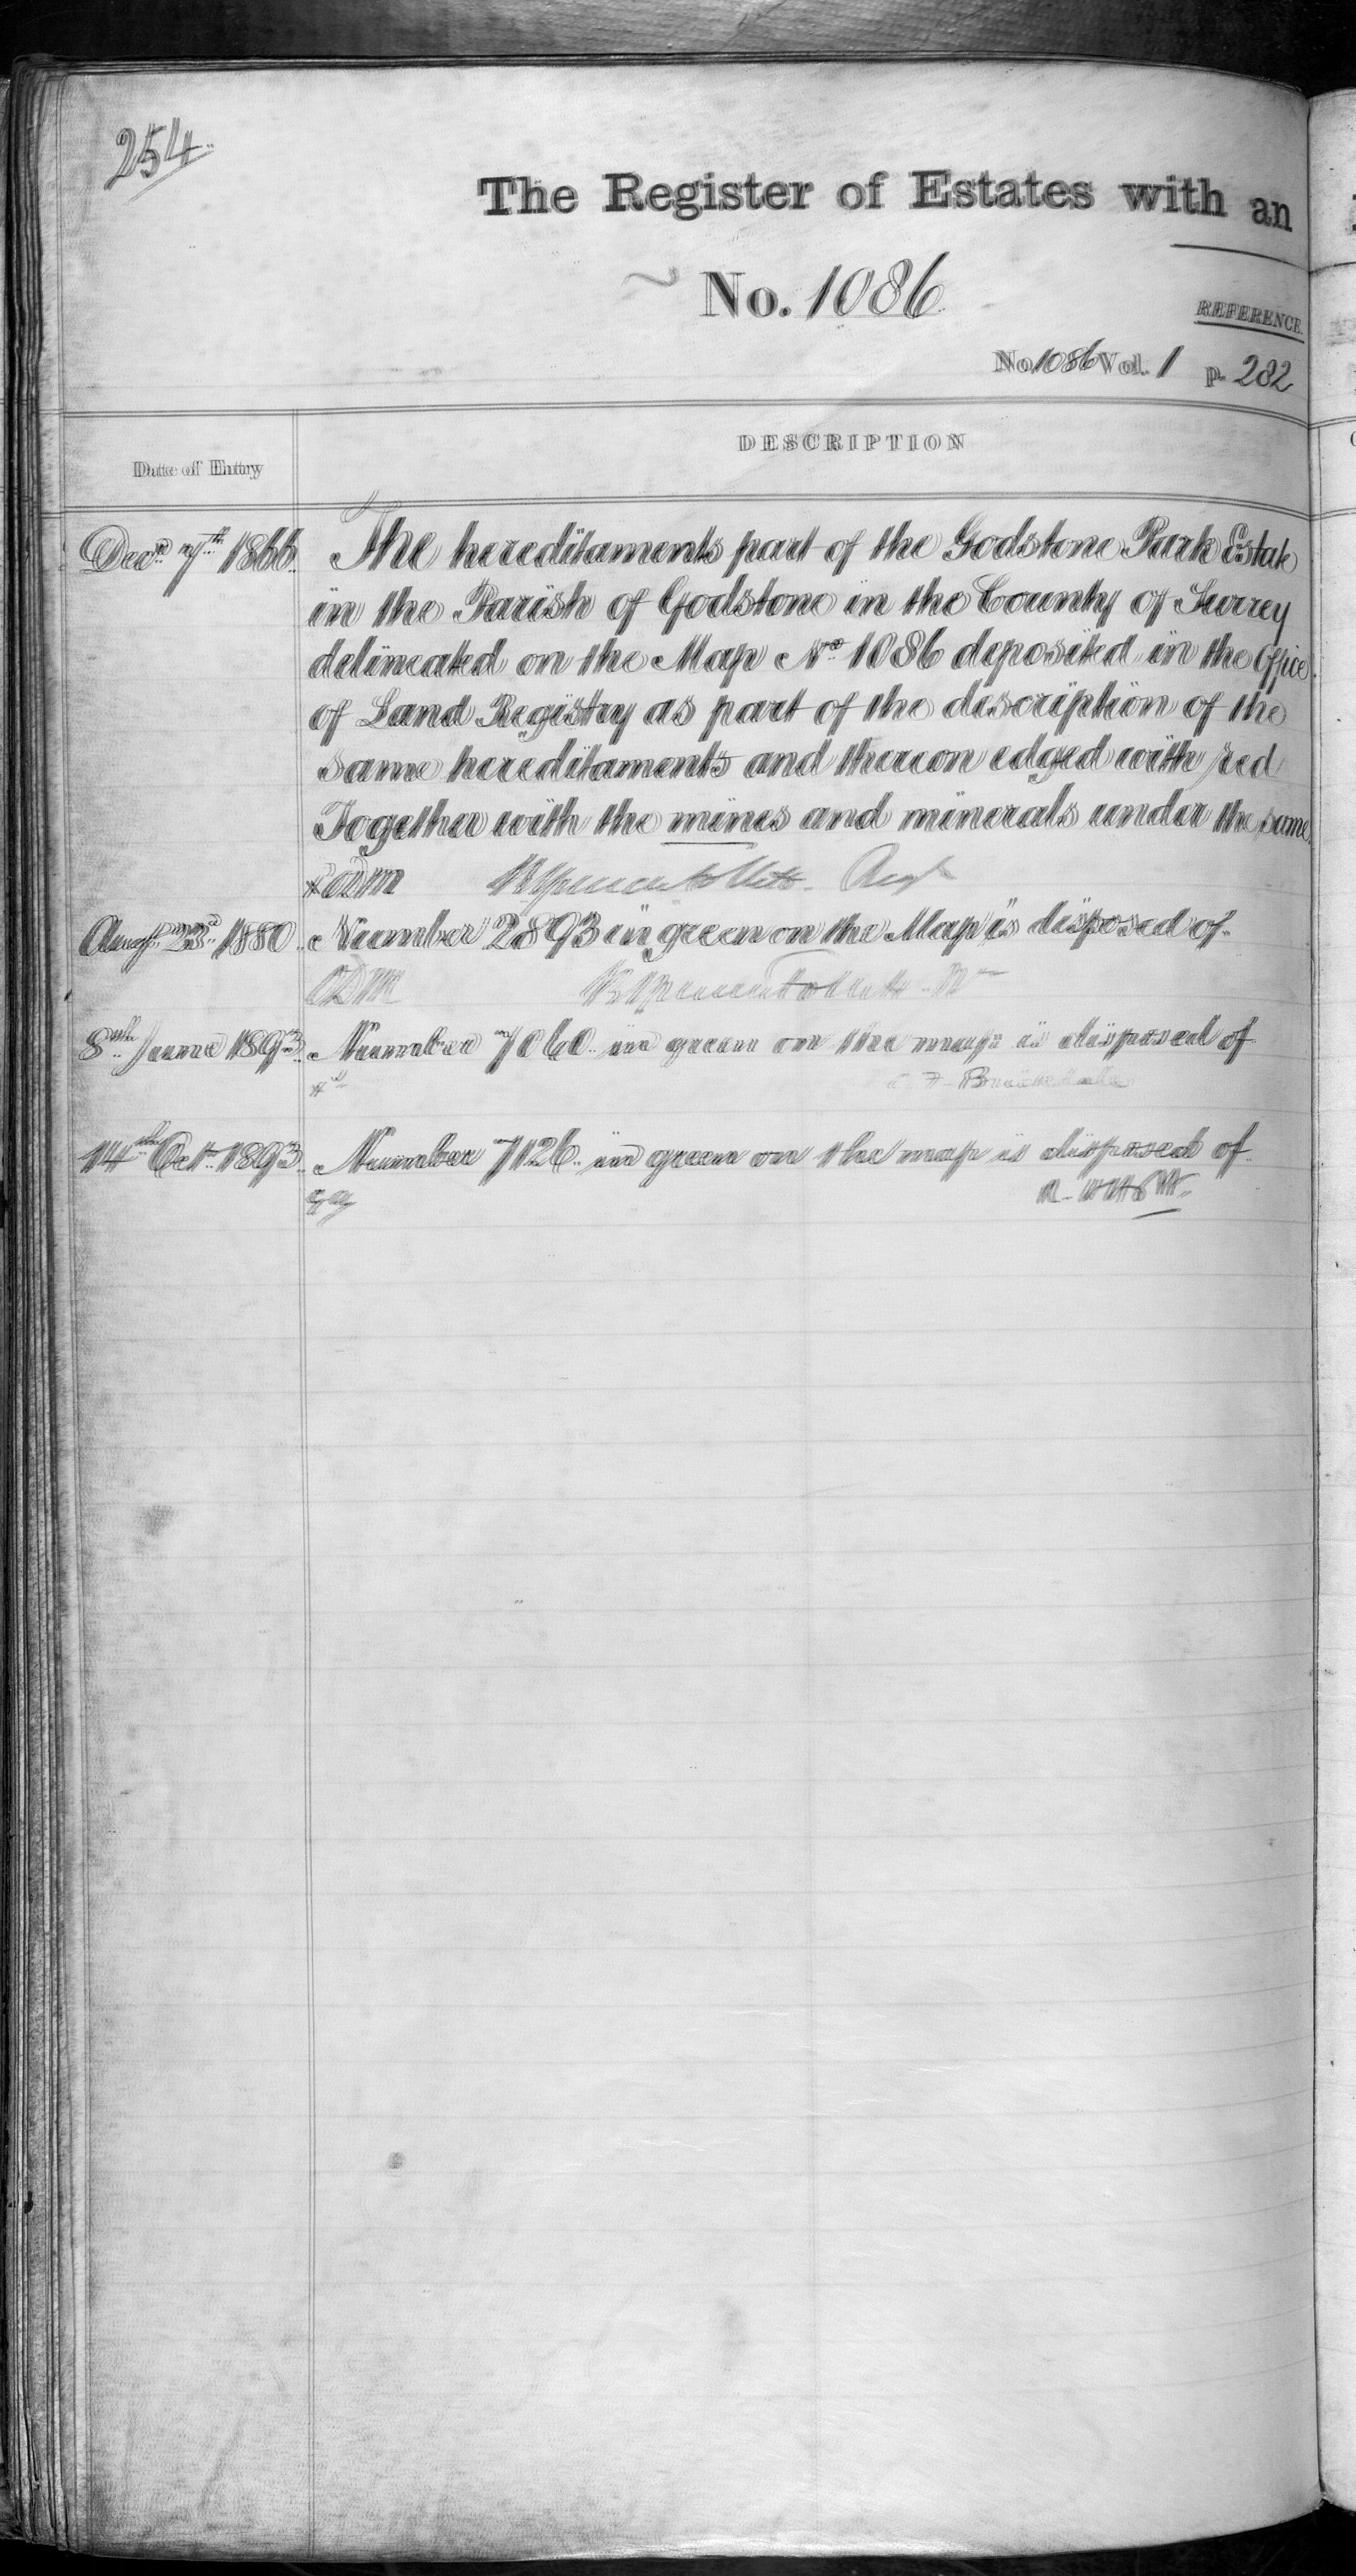 254.
The Register of Estates with an
No. 1086
REFERENCE.
No 1086 Vol. 1 p. 282
DESCRIPTION
Date of Entry
Decr 7th 1866. The hereditaments part of the Godstone Park Estate
in the Parish of Godstone in the County of Surrey
delineated on the Map No 1086 deposited in the Office
of Land Registry as part of the description of the
same hereditaments and thereon edged with red
Together with the mines and minerals under the same.
Augt 23rd 1880. Number 2893 in green on the Map is disposed of.
8th June 1893. Number 7060 in green on the map is disposed of
14th Oct. 1893. Number 7126 in green on the map is disposed of.